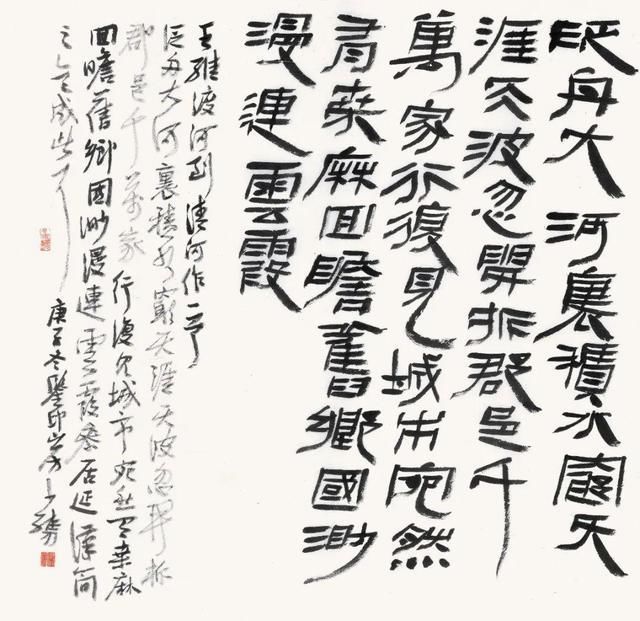 汎舟大河裏積水窮天
涯天波忽開拆郡邑千
萬家行復見城市宛然
有桑麻回瞻舊鄉國渺
漫連雲霞
王維渡河到清河作一首
泛舟大河裏積水窮天涯天波忽開拆
郡邑千萬家行復見城市宛然有桑麻
回瞻舊鄉國渺漫連雲霞叅居延漢簡
之意成此
庚子冬鑒印山房